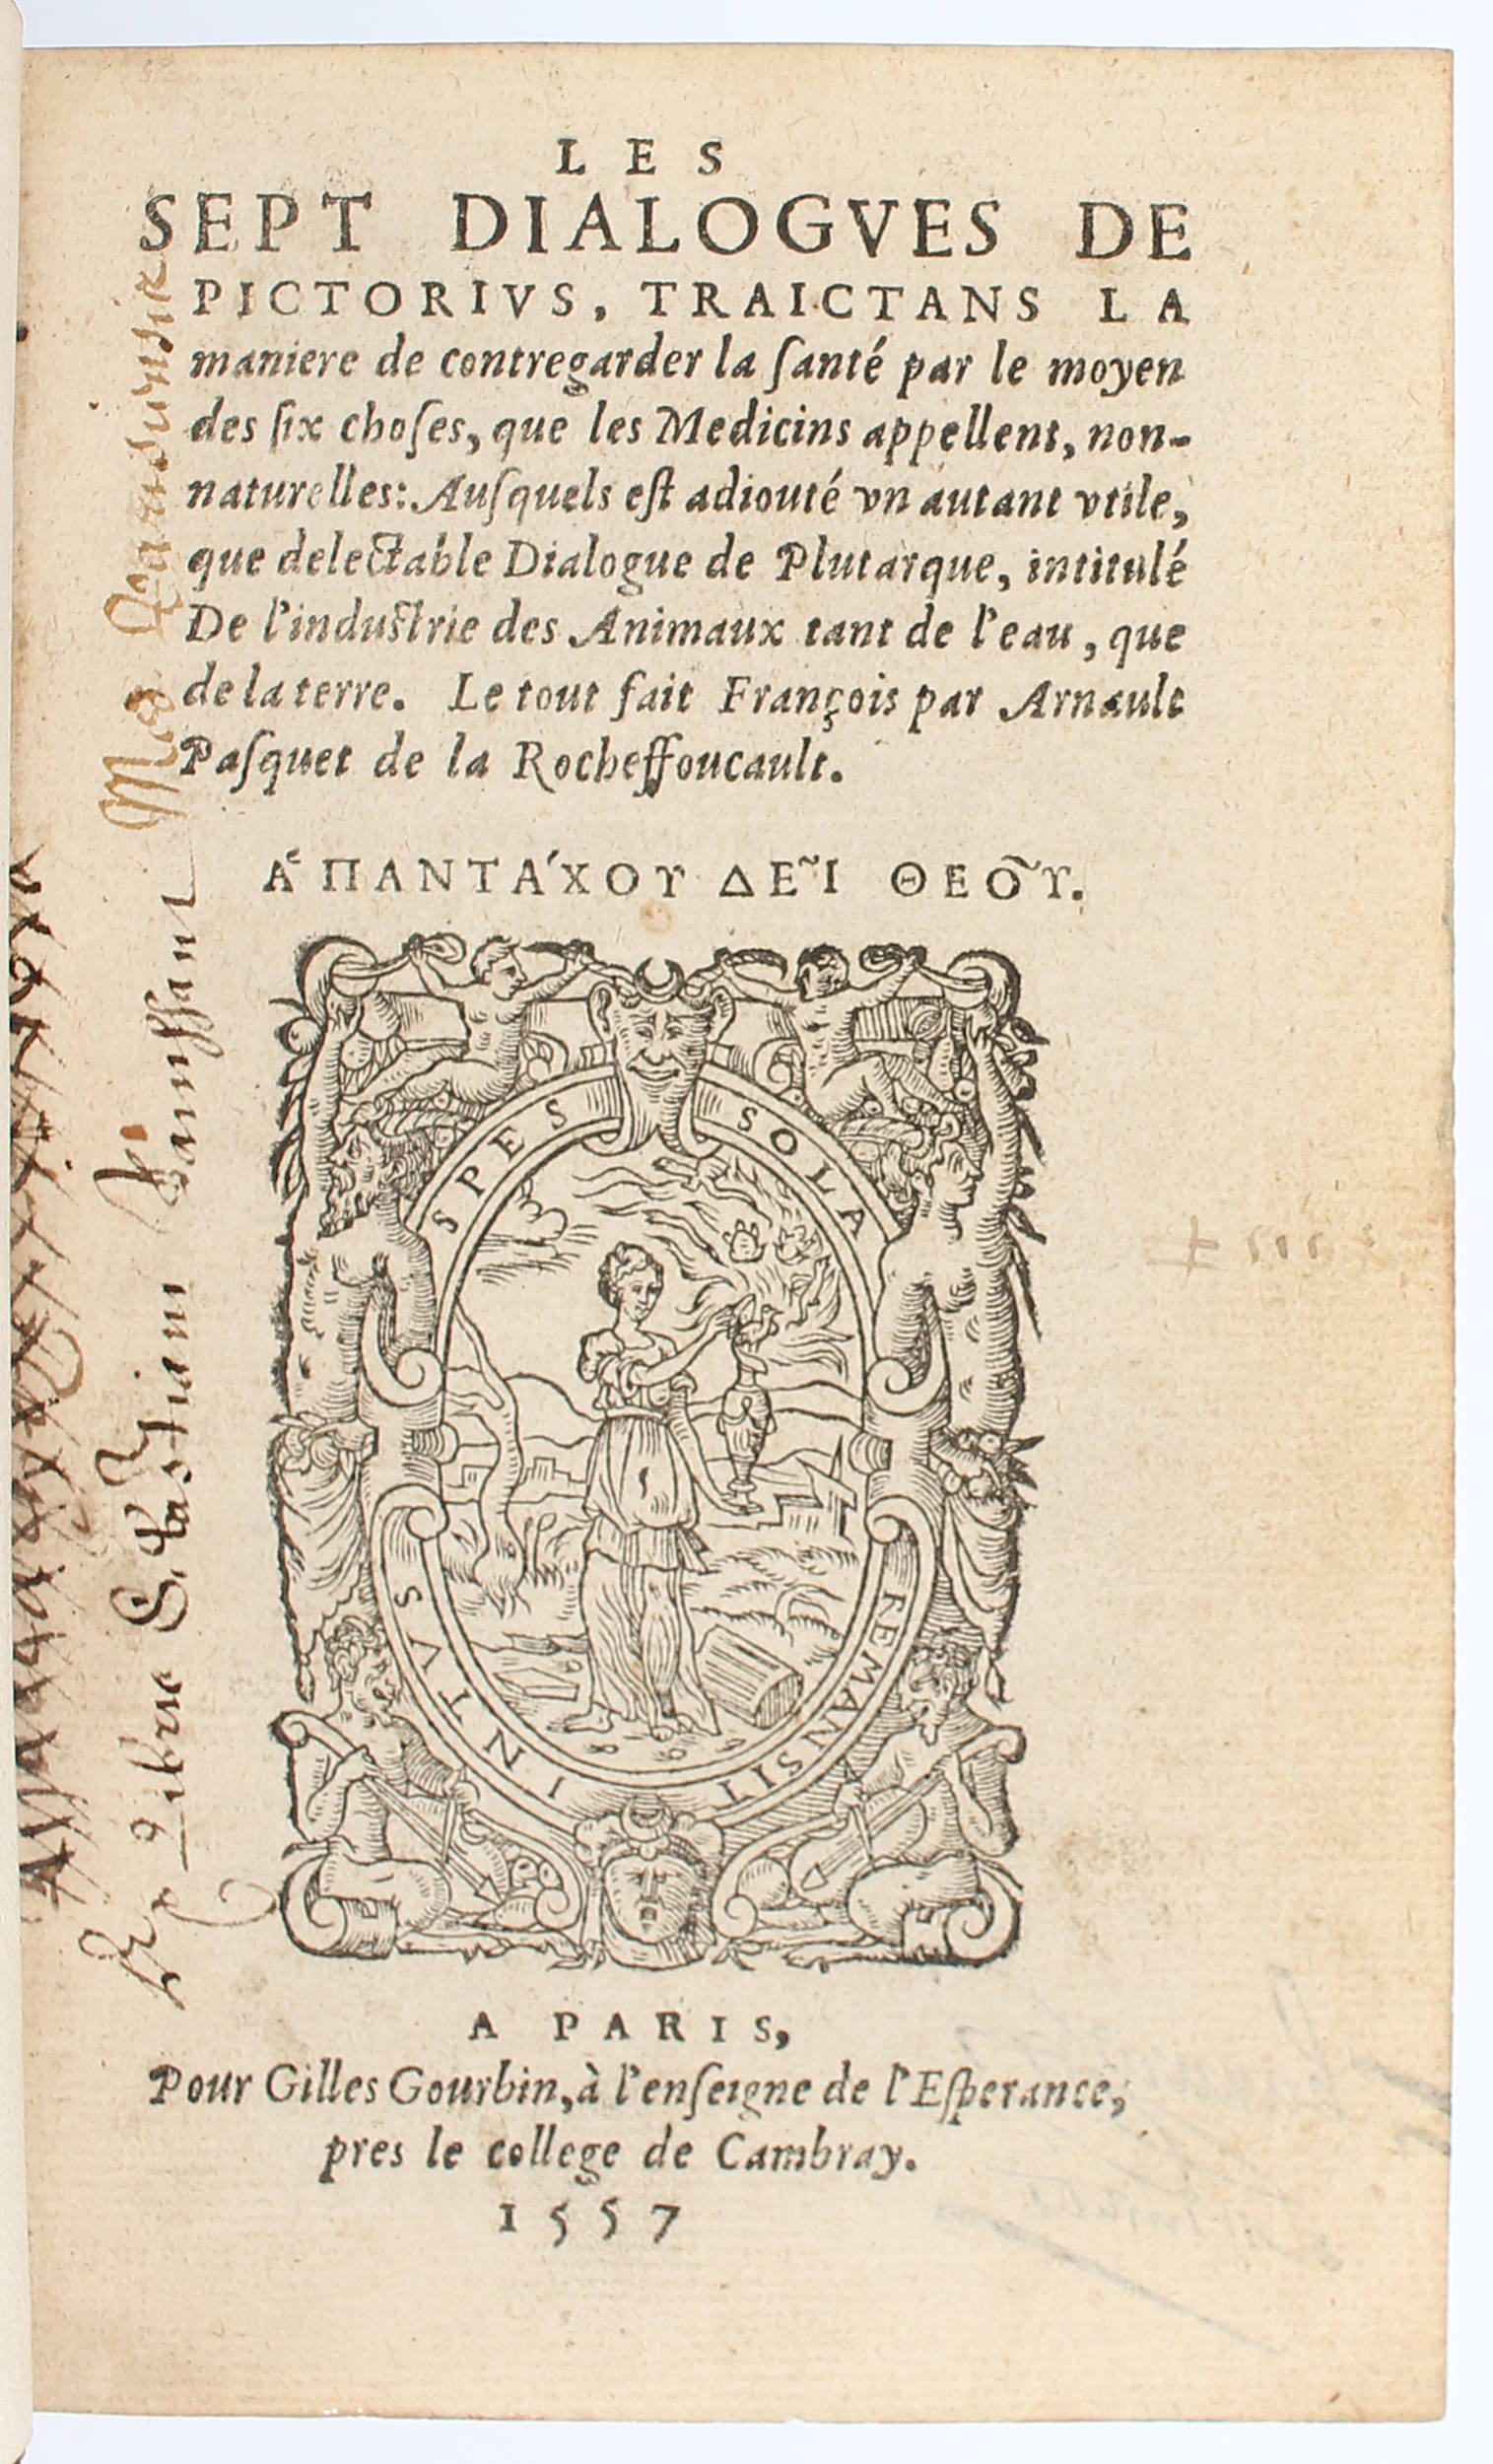 LES
SEPT DIALOGVES DE
PICTORIVS, TRAICTANS LA
maniere de contregarder la ſanté par le moyen
des ſix choſes, que les Medicins appellent, non-
naturelles: Auſquels eſt adiouté vn autant vtile,
que delectable Dialogue de Plutarque, intitulé
De l'induſtrie des Animaux tant de l'eau, que
de la terre. Le tout fait François par Arnault
Paſquet de la Rocheffoucault.
Ἁ ΠΑΝΤΆΧΟΥ ΔΕ͂Ι ΘΕΟ͂Υ.
SPES SOLA
REMANSIT
INTVS
A PARIS,
Pour Gilles Gourbin, à l'enſeigne de l'Eſperance,
pres le college de Cambray.
1557
Ex Libris